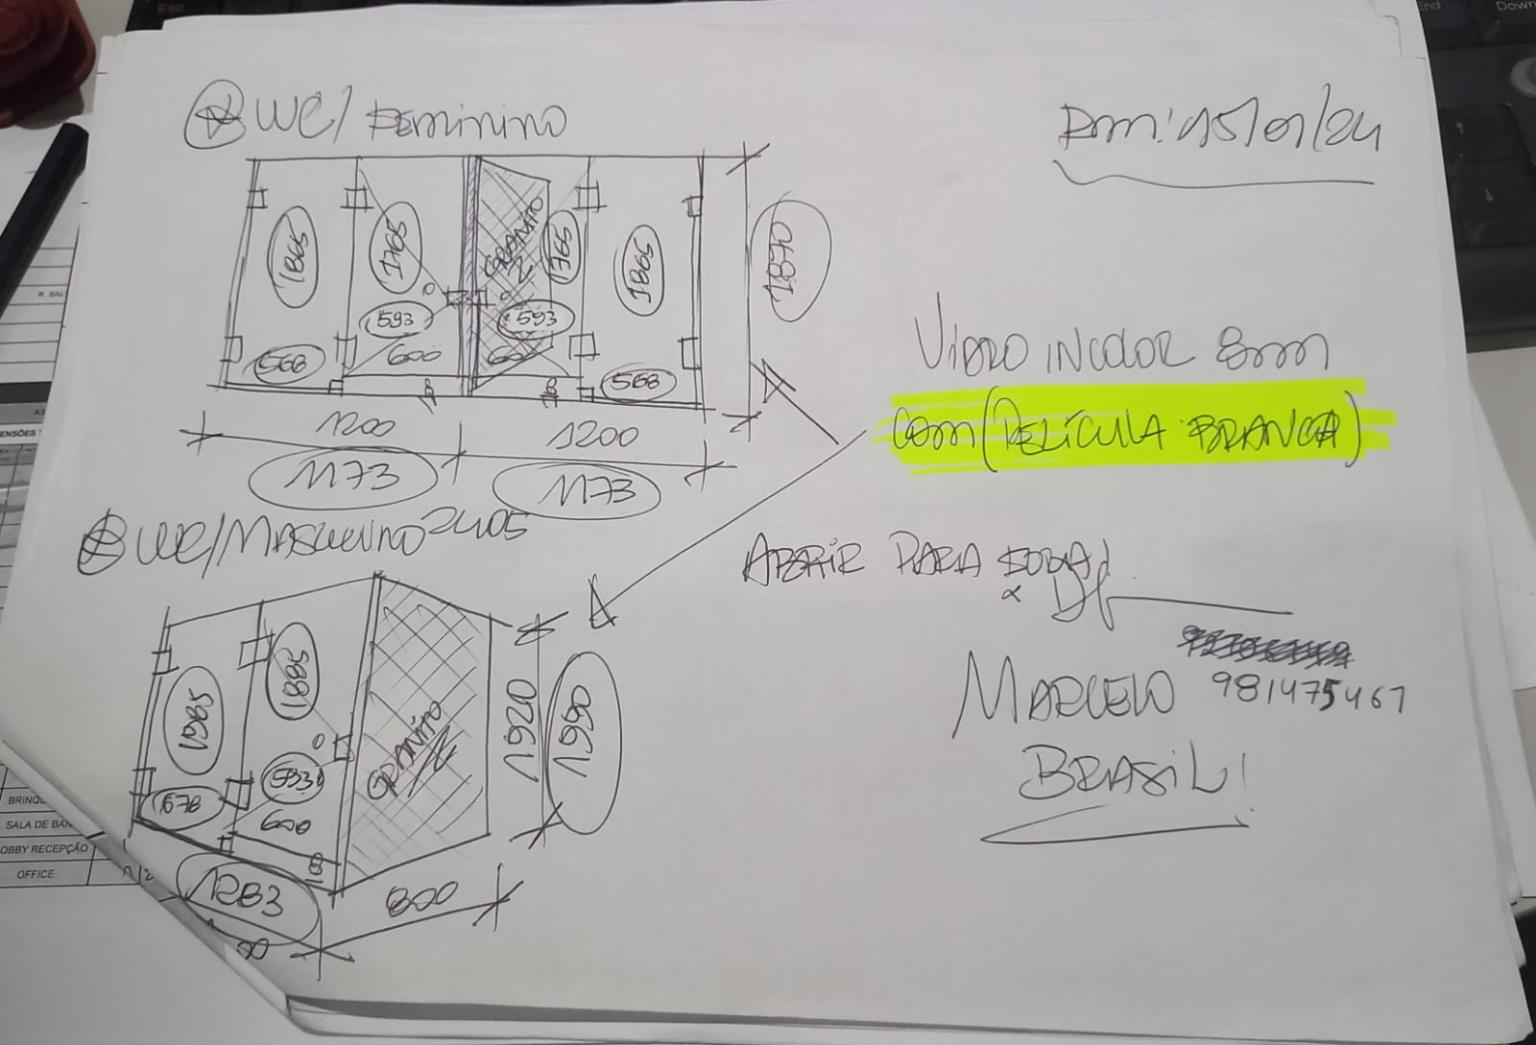 WC/Feminino
Dom: 15/01/24
1865
1765
GRANITO
1765
1865
1870
593
593
568
600
600
568
1200
1200
1173
1173
Vidro incolor 8mm
com (PELÍCULA BRANCA)
WC/Masculino 2405
ABRIR PARA
1985
1885
GRANITO
1920
1990
593
678
600
100
1283
800
MARCELO 981475467
BRASIL!
BRINQ
SALA DE BAN
OBBY RECEPÇÃO
OFFICE
ENSÕES
Esc
End
Down